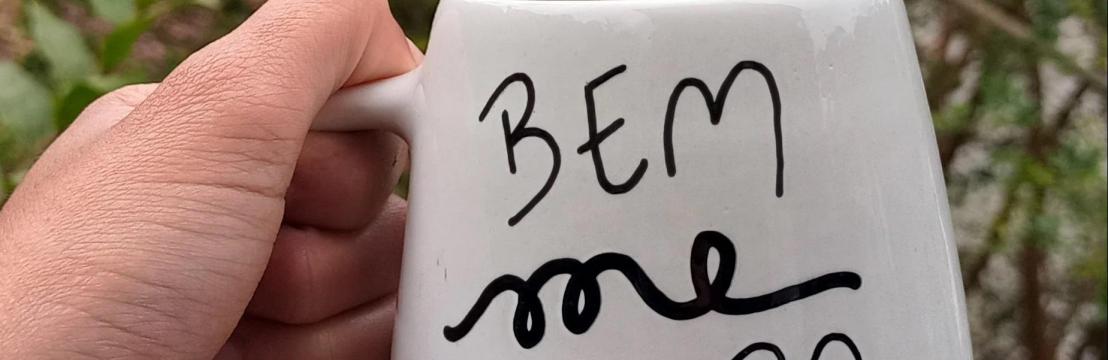 BEM
me